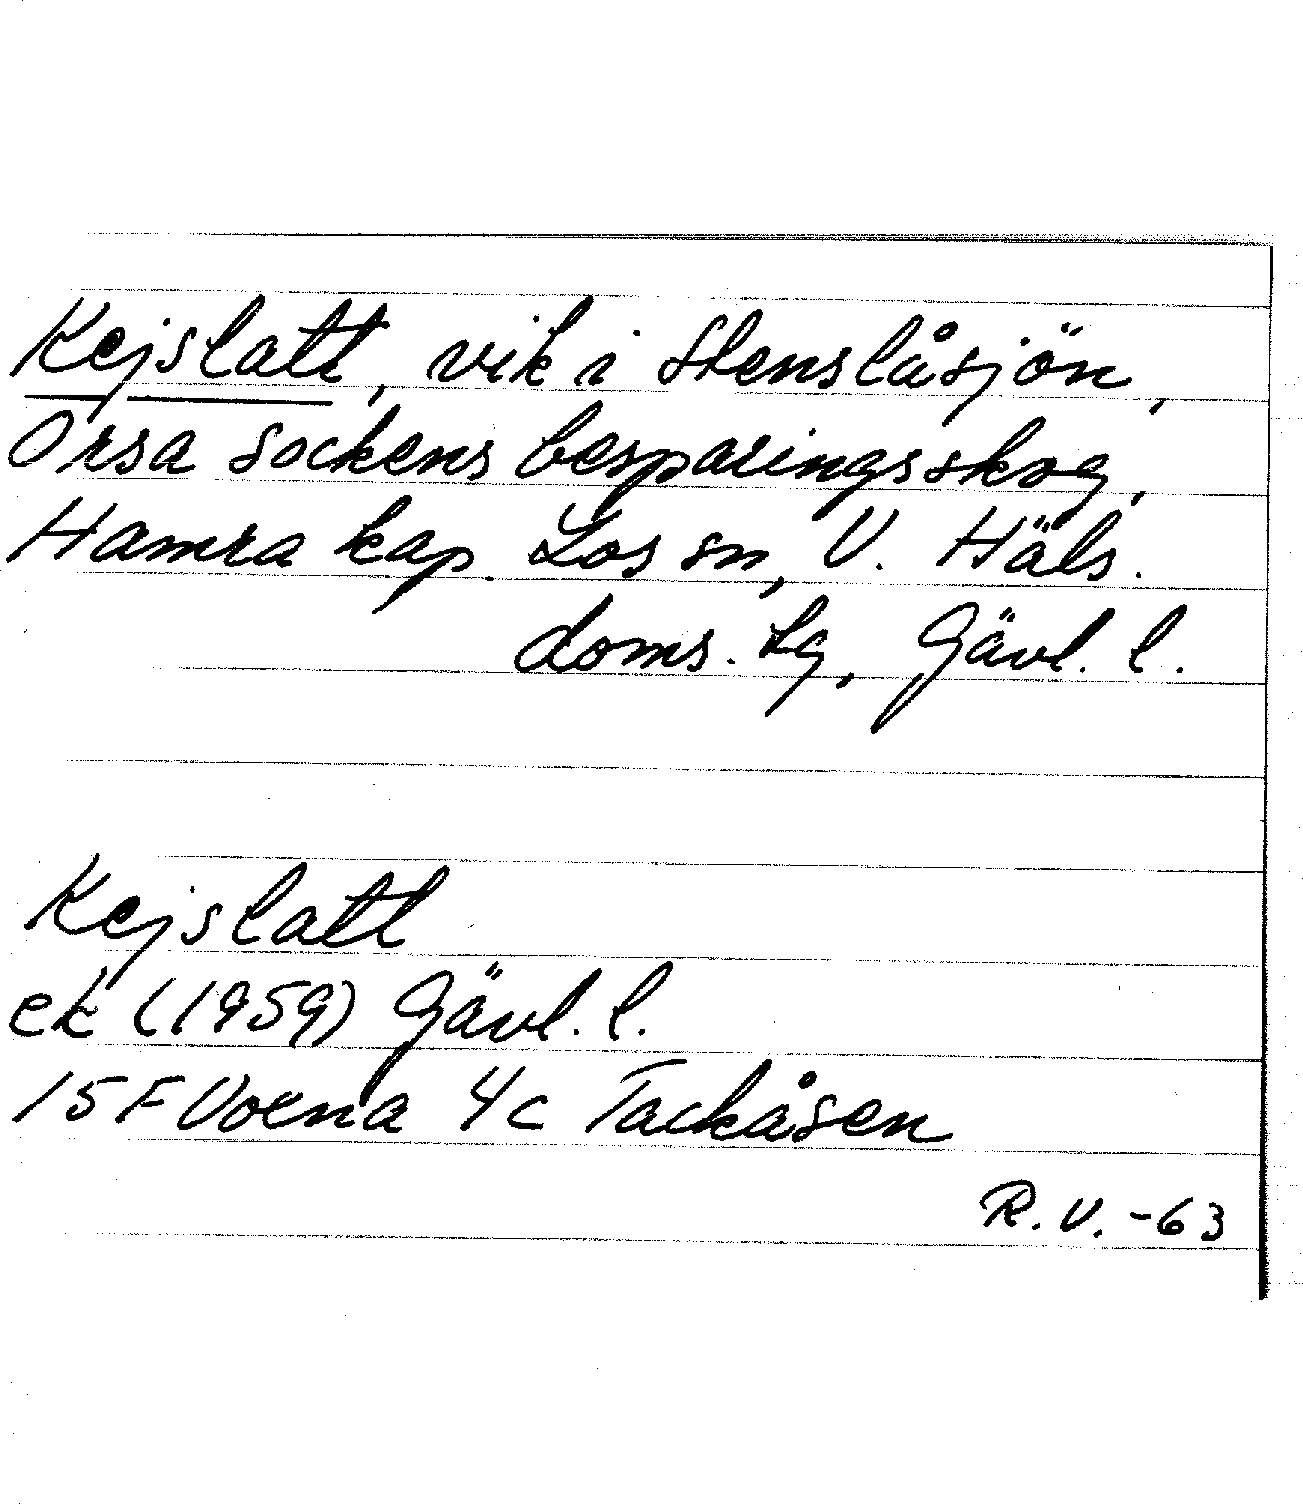 Kejslatt, vik i Stenslåsjön,
Orsa sockens besparingsskog,
Hamra kap. Los sn, V. Häls.
doms. lg, Gävl. l.
Kejslatt
ek (1959) Gävl. l.
15 F Voxna 4c Tackåsen
R.V. -63